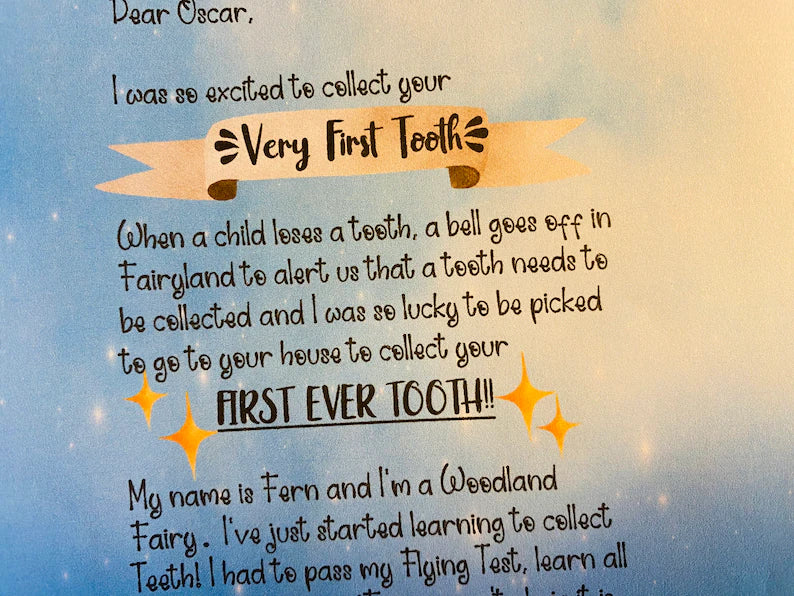 Dear Oscar,
I was so excited to collect your
Very First Tooth
When a child loses a tooth, a bell goes off in
Fairyland to alert us that a tooth needs to
be collected and I was so lucky to be picked
to go to your house to collect your
FIRST EVER TOOTH!!
My name is Fern and I'm a Woodland
Fairy. I've just started learning to collect
Teeth! I had to pass my Flying Test, learn all